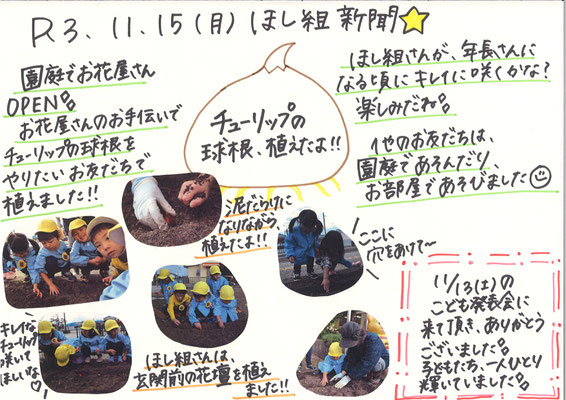 R3.11.15(月)ほし組新聞
園庭でお花屋さん
OPEN
お花屋さんのお手伝いで
チューリップの球根を
やりたいお友だちで
植えました!!
チューリップの
球根、植えたよ!!
ほし組さんが、年長さんに
なる頃にキレイに咲くかな?
楽しみだね。
他のお友だちは、
園庭であそんだり、
お部屋であそびました
泥だらけに
なりながら、
植えたよ!!
ここに
穴をあけて〜
キレイな
チューリップ
咲いて
ほしいな
ほし組さんは、
玄関前の花壇を植え
ました!!
11/13(土)の
こども発表会に
来て頂き、ありがとう
ございました。
子どもたち、一人ひとり
輝いていました。